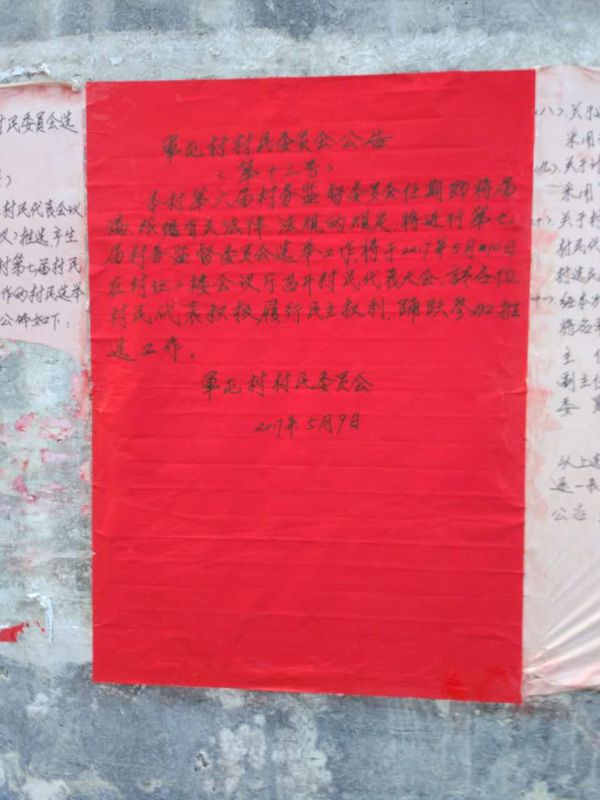 村民委員会选
村民代表会议
议)推选产生
村第七届村民
作的村民选举
公佈如下:
军屯村村民委员会公告
(第十三号)
本村第六届村务监督委员会任期即将届
满,根据有关法律、法规的规定,将进行第七
届村务监督委员会选举工作将于2017年5月10日
在村址二楼会议厅召开村民代表大会,请各位
村民代表积极履行民主权利,踊跃参加推
选工作。
军屯村村民委员会
2017年5月9日
(八)、关于
采用
(九)、关于计
采用
十)、关于村
村民代
村选民
十一、经本
将名
主任
副主任
委员
以上
逐一表
公告